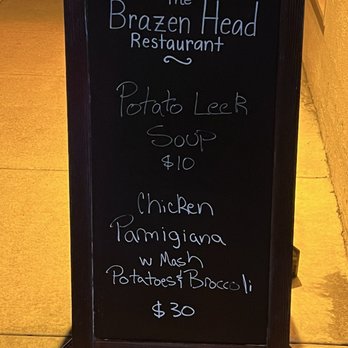 The
Brazen Head
Restaurant
Potato Leek
Soup
$10
Chicken
Parmigiana
w Mash
Potatoes & Broccoli
$30